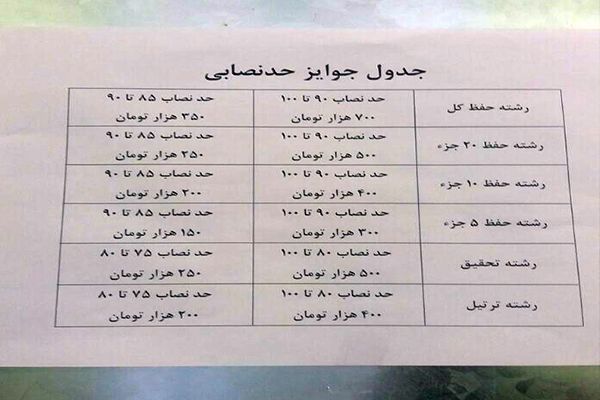 جدول جوایز حدنصابی
رشته حفظ کل
حد نصاب ۹۰ تا ۱۰۰
۷۰۰ هزار تومان
حد نصاب ۸۵ تا ۹۰
۳۵۰ هزار تومان
رشته حفظ ۲۰ جزء
حد نصاب ۹۰ تا ۱۰۰
۵۰۰ هزار تومان
حد نصاب ۸۵ تا ۹۰
۲۵۰ هزار تومان
رشته حفظ ۱۰ جزء
حد نصاب ۹۰ تا ۱۰۰
۴۰۰ هزار تومان
حد نصاب ۸۵ تا ۹۰
۲۰۰ هزار تومان
رشته حفظ ۵ جزء
حد نصاب ۹۰ تا ۱۰۰
۳۰۰ هزار تومان
حد نصاب ۸۵ تا ۹۰
۱۵۰ هزار تومان
رشته تحقیق
حد نصاب ۸۰ تا ۱۰۰
۵۰۰ هزار تومان
حد نصاب ۷۵ تا ۸۰
۲۵۰ هزار تومان
رشته ترتیل
حد نصاب ۸۰ تا ۱۰۰
۴۰۰ هزار تومان
حد نصاب ۷۵ تا ۸۰
۲۰۰ هزار تومان